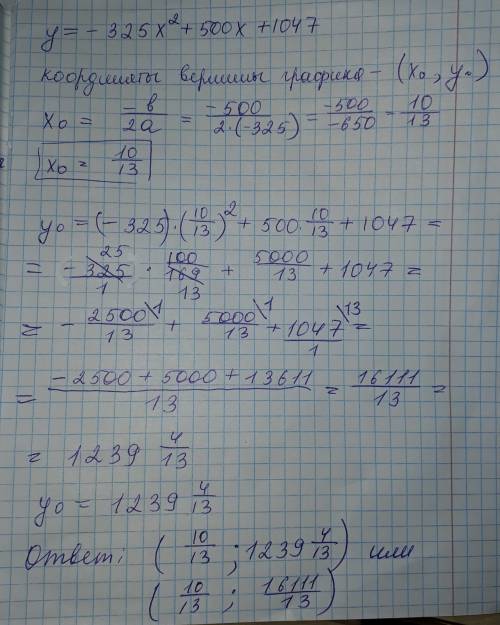 y = - 325x² + 500x + 1047
координаты вершины графика – (x₀, y₀)
x₀ = -в/2а = -500/2·(-325) = -500/-650 = 10/13
x₀ = 10/13
y₀ = (- 325)·(10/13)² + 500·10/13 + 1047 =
25 100
= - 325/1 · 100/169 + 5000/13 + 1047 =
13
= - 2500\1/13 + 5000\1/13 + 1047\13/1 =
= -2500 + 5000 + 13611/13 = 16111/13 =
= 1239 4/13
y₀ = 1239 4/13
Ответ: (10/13 ; 1239 4/13) или
(10/13 ; 16111/13)